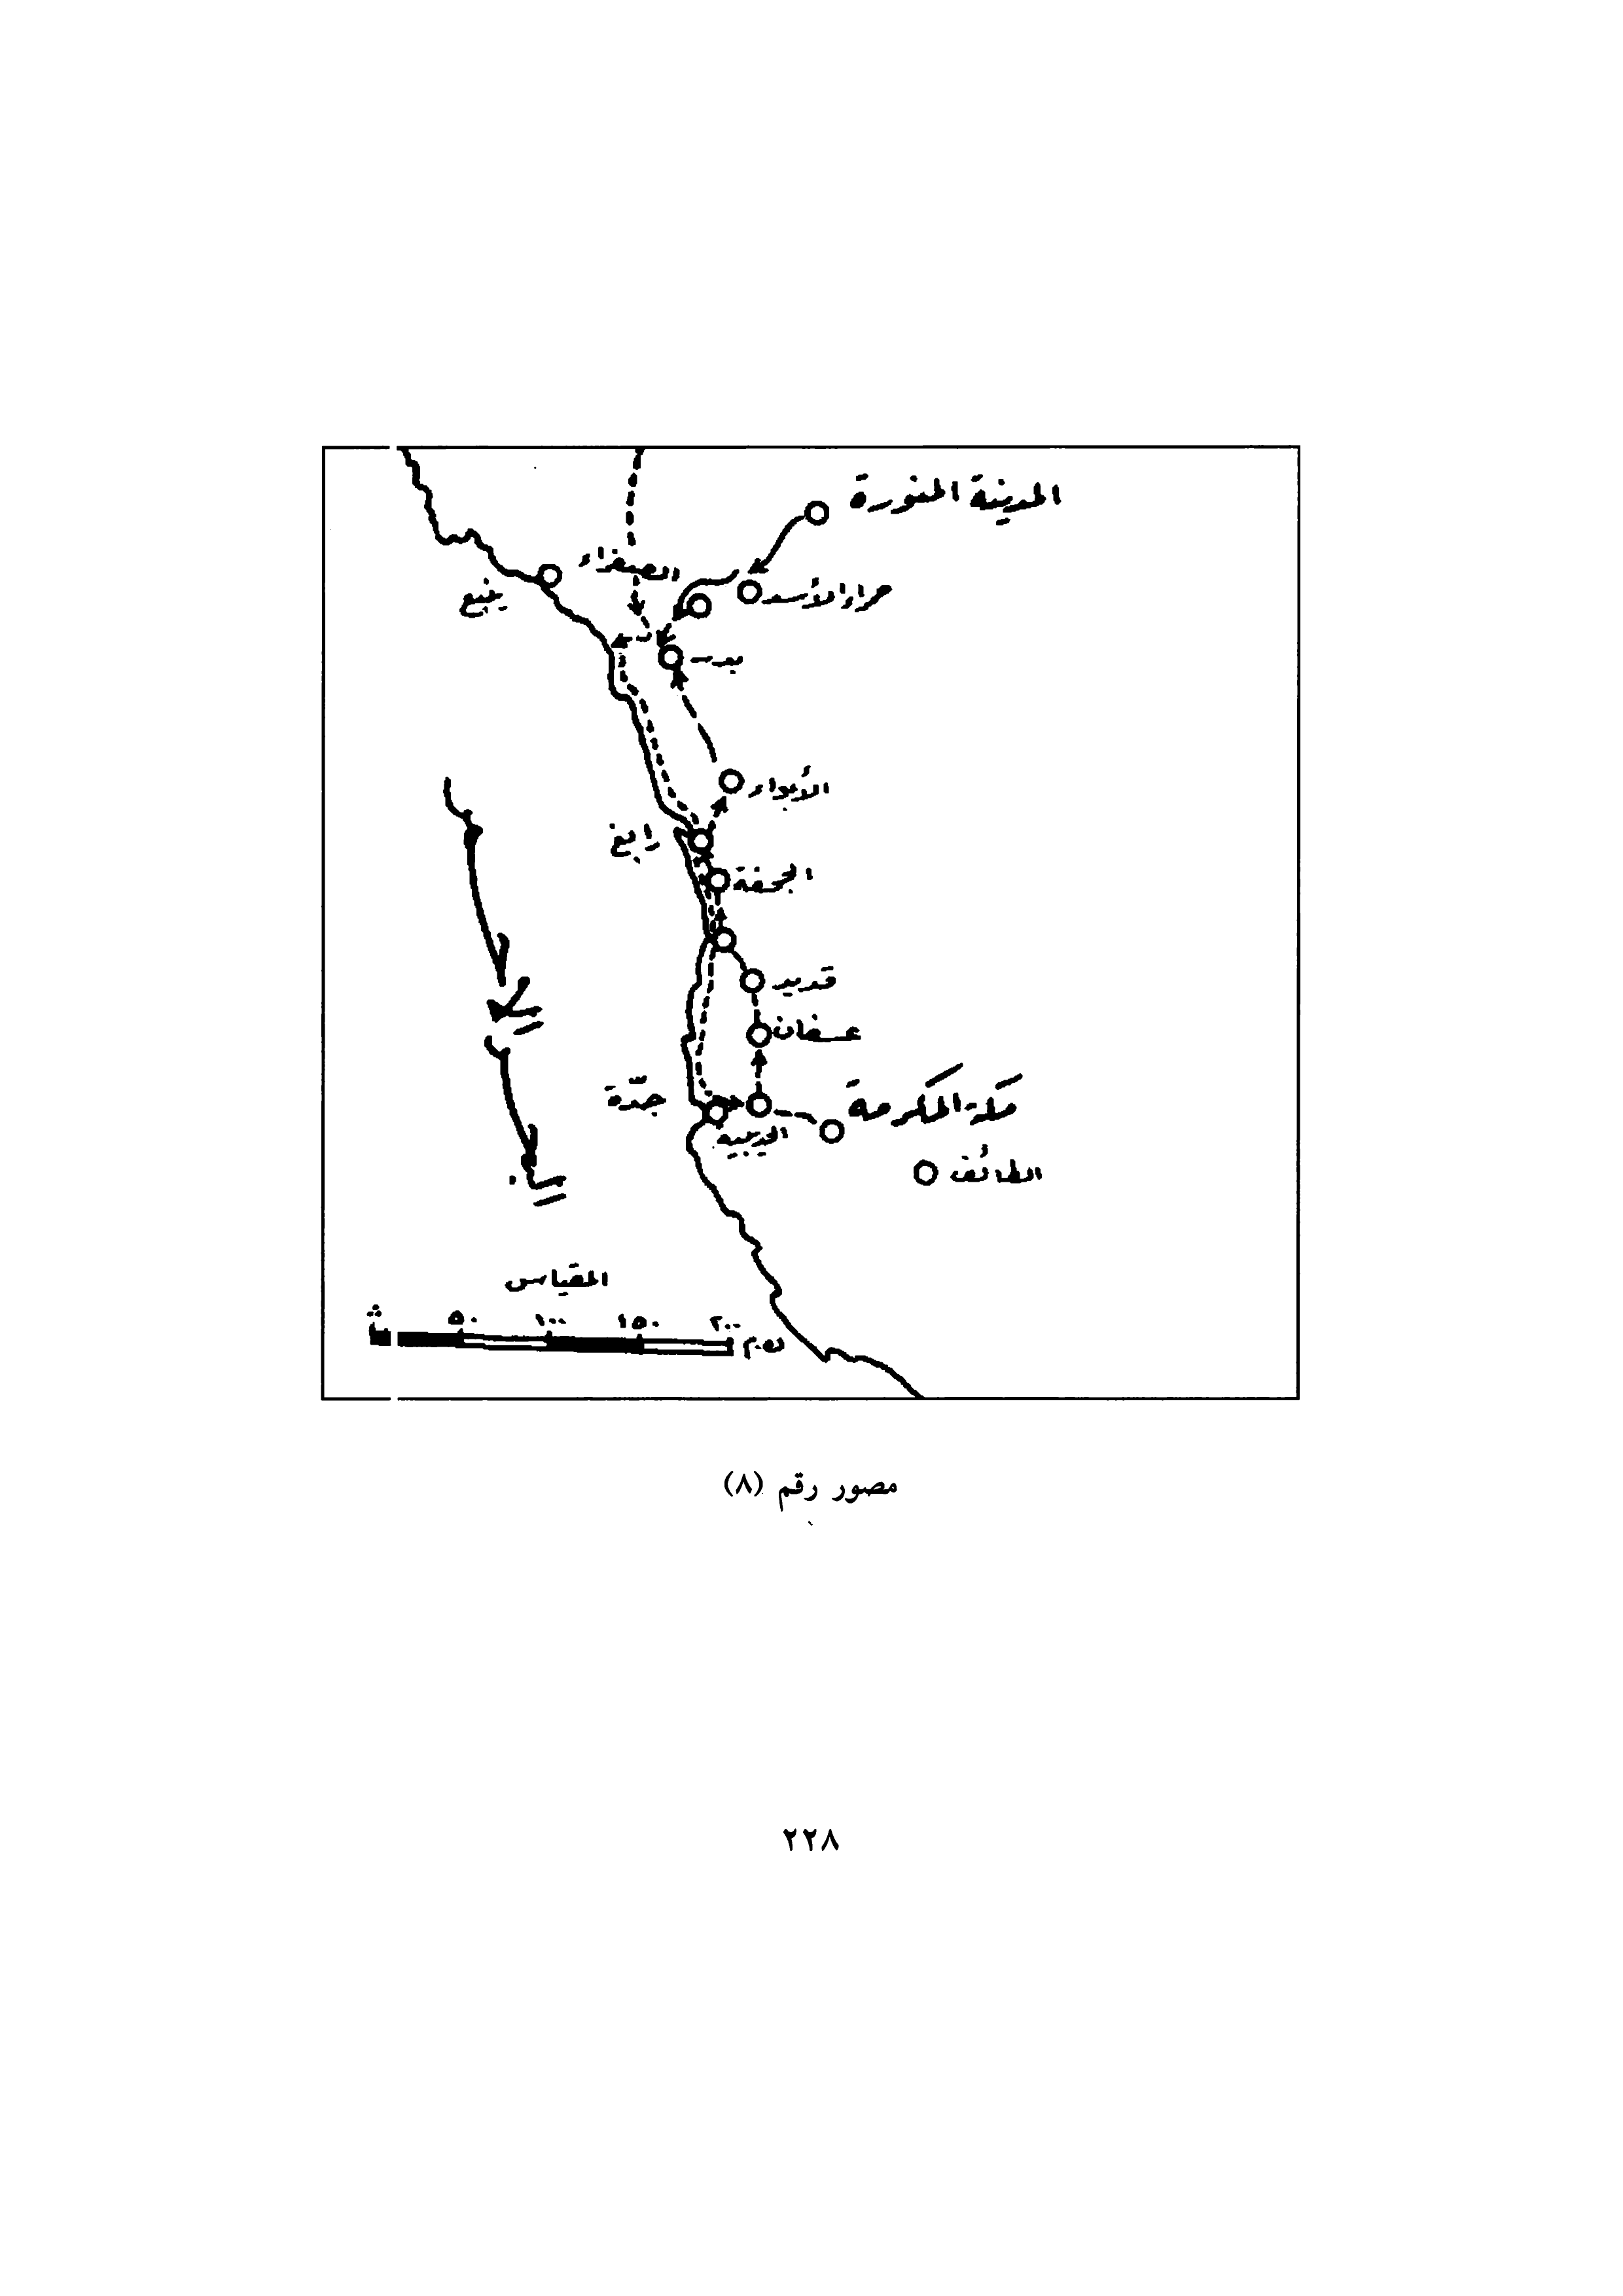 المدينة المنورة
الصفراء
ينبع
حمراء الأسد
بدر
الأبواء
رابغ
الجحفة
قديد
عسفان
جدّة
مكة المكرمة
الحديبية
الطائف
المقياس
٥٠ ١٠٠ ١٥٠ ٢٠٠
مصور رقم (٨)
٢٢٨